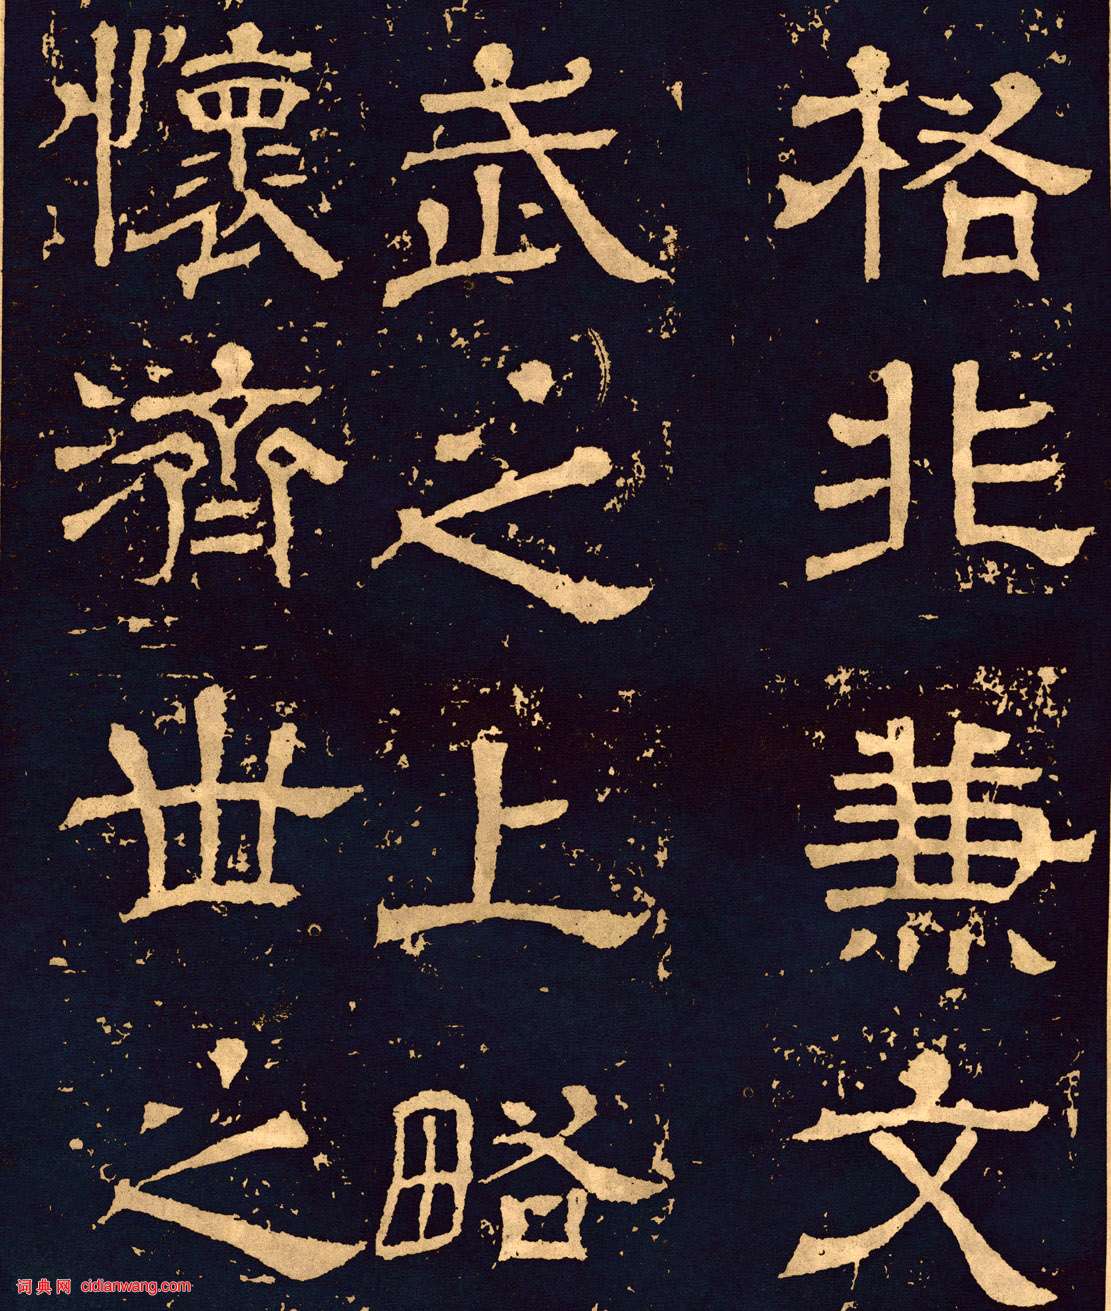 格非兼文
武之上略
懷濟世之
词典网 cidianwang.com